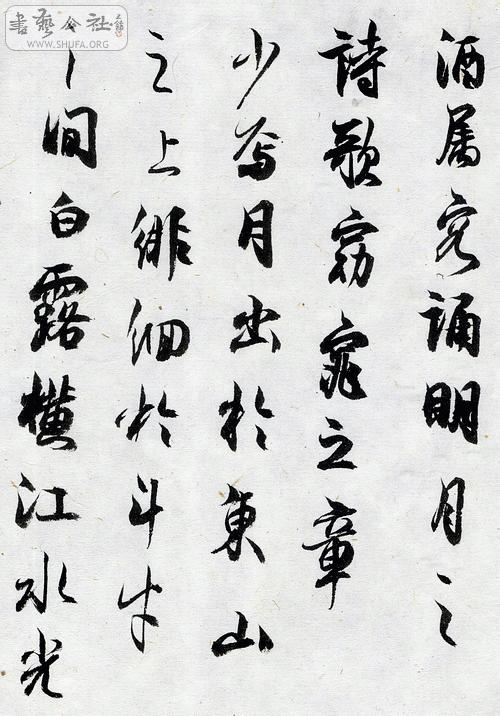 書藝公社
WWW.SHUFA.ORG
酒属客誦明月之
詩歌窈窕之章
少焉月出於東山
之上徘徊於斗牛
之間白露横江水光